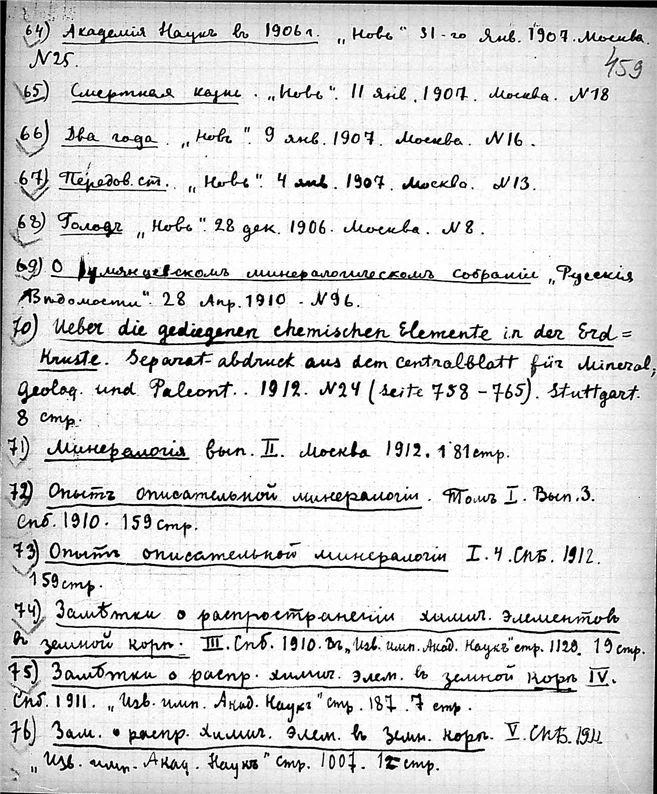 64) Академія Наукъ въ 1906 г. „Новь" 31-го Янв. 1907. Москва.
N25.
459
65) Смертная казнь. „Новь". 11 янв. 1907. Москва. N18
66) Два года. „Новь". 9 янв. 1907. Москва. N16.
67) Передов. ст. „Новь". 4 янв. 1907. Москва. N13.
68) Голодъ „Новь". 28 дек. 1906. Москва. N8.
69) О Румянцевскомъ минералогическомъ собраніи „Русскія
Вѣдомости". 28 Апр. 1910 - N96.
70) Ueber die gediegenen chemischen Elemente in der Erd=
Kruste. Separat-abdruck aus dem Centralblatt für Mineral,
Geolog. und Paleont.. 1912. N24 (Seite 758-765). Stuttgart.
8 стр.
71) Минералогія вып. II. Москва 1912. 181 стр.
72) Опытъ описательной минералогіи. Томъ I. Вып. 3.
Спб. 1910. 159 стр.
73) Опытъ описательной минералогіи I. 4. СПБ. 1912.
159 стр.
74) Замѣтки о распространеніи химич. элементовъ
въ земной корѣ. III. Спб. 1910. Въ „Изв. имп. Акад. Наукъ" стр. 1129. 19 стр.
75) Замѣтки о распр. химич. элем. въ земной корѣ IV.
Спб. 1911. „Изв. имп. Акад. Наукъ" стр. 187. 7 стр.
76) Зам. о распр. химич. элем. въ земн. корѣ. V. СПБ. 1911
„Изв. имп. Акад. Наукъ" стр. 1007. 12 стр.